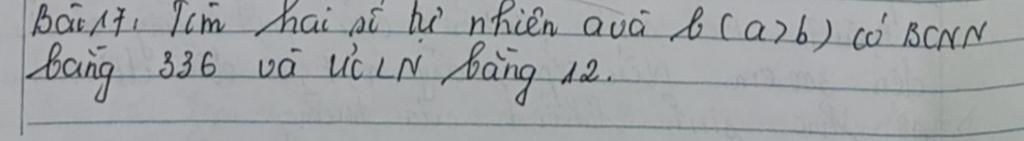 Bài 17. Tìm hai số tự nhiên a và b (a>b) có BCNN
bằng 336 và ƯCLN bằng 12.